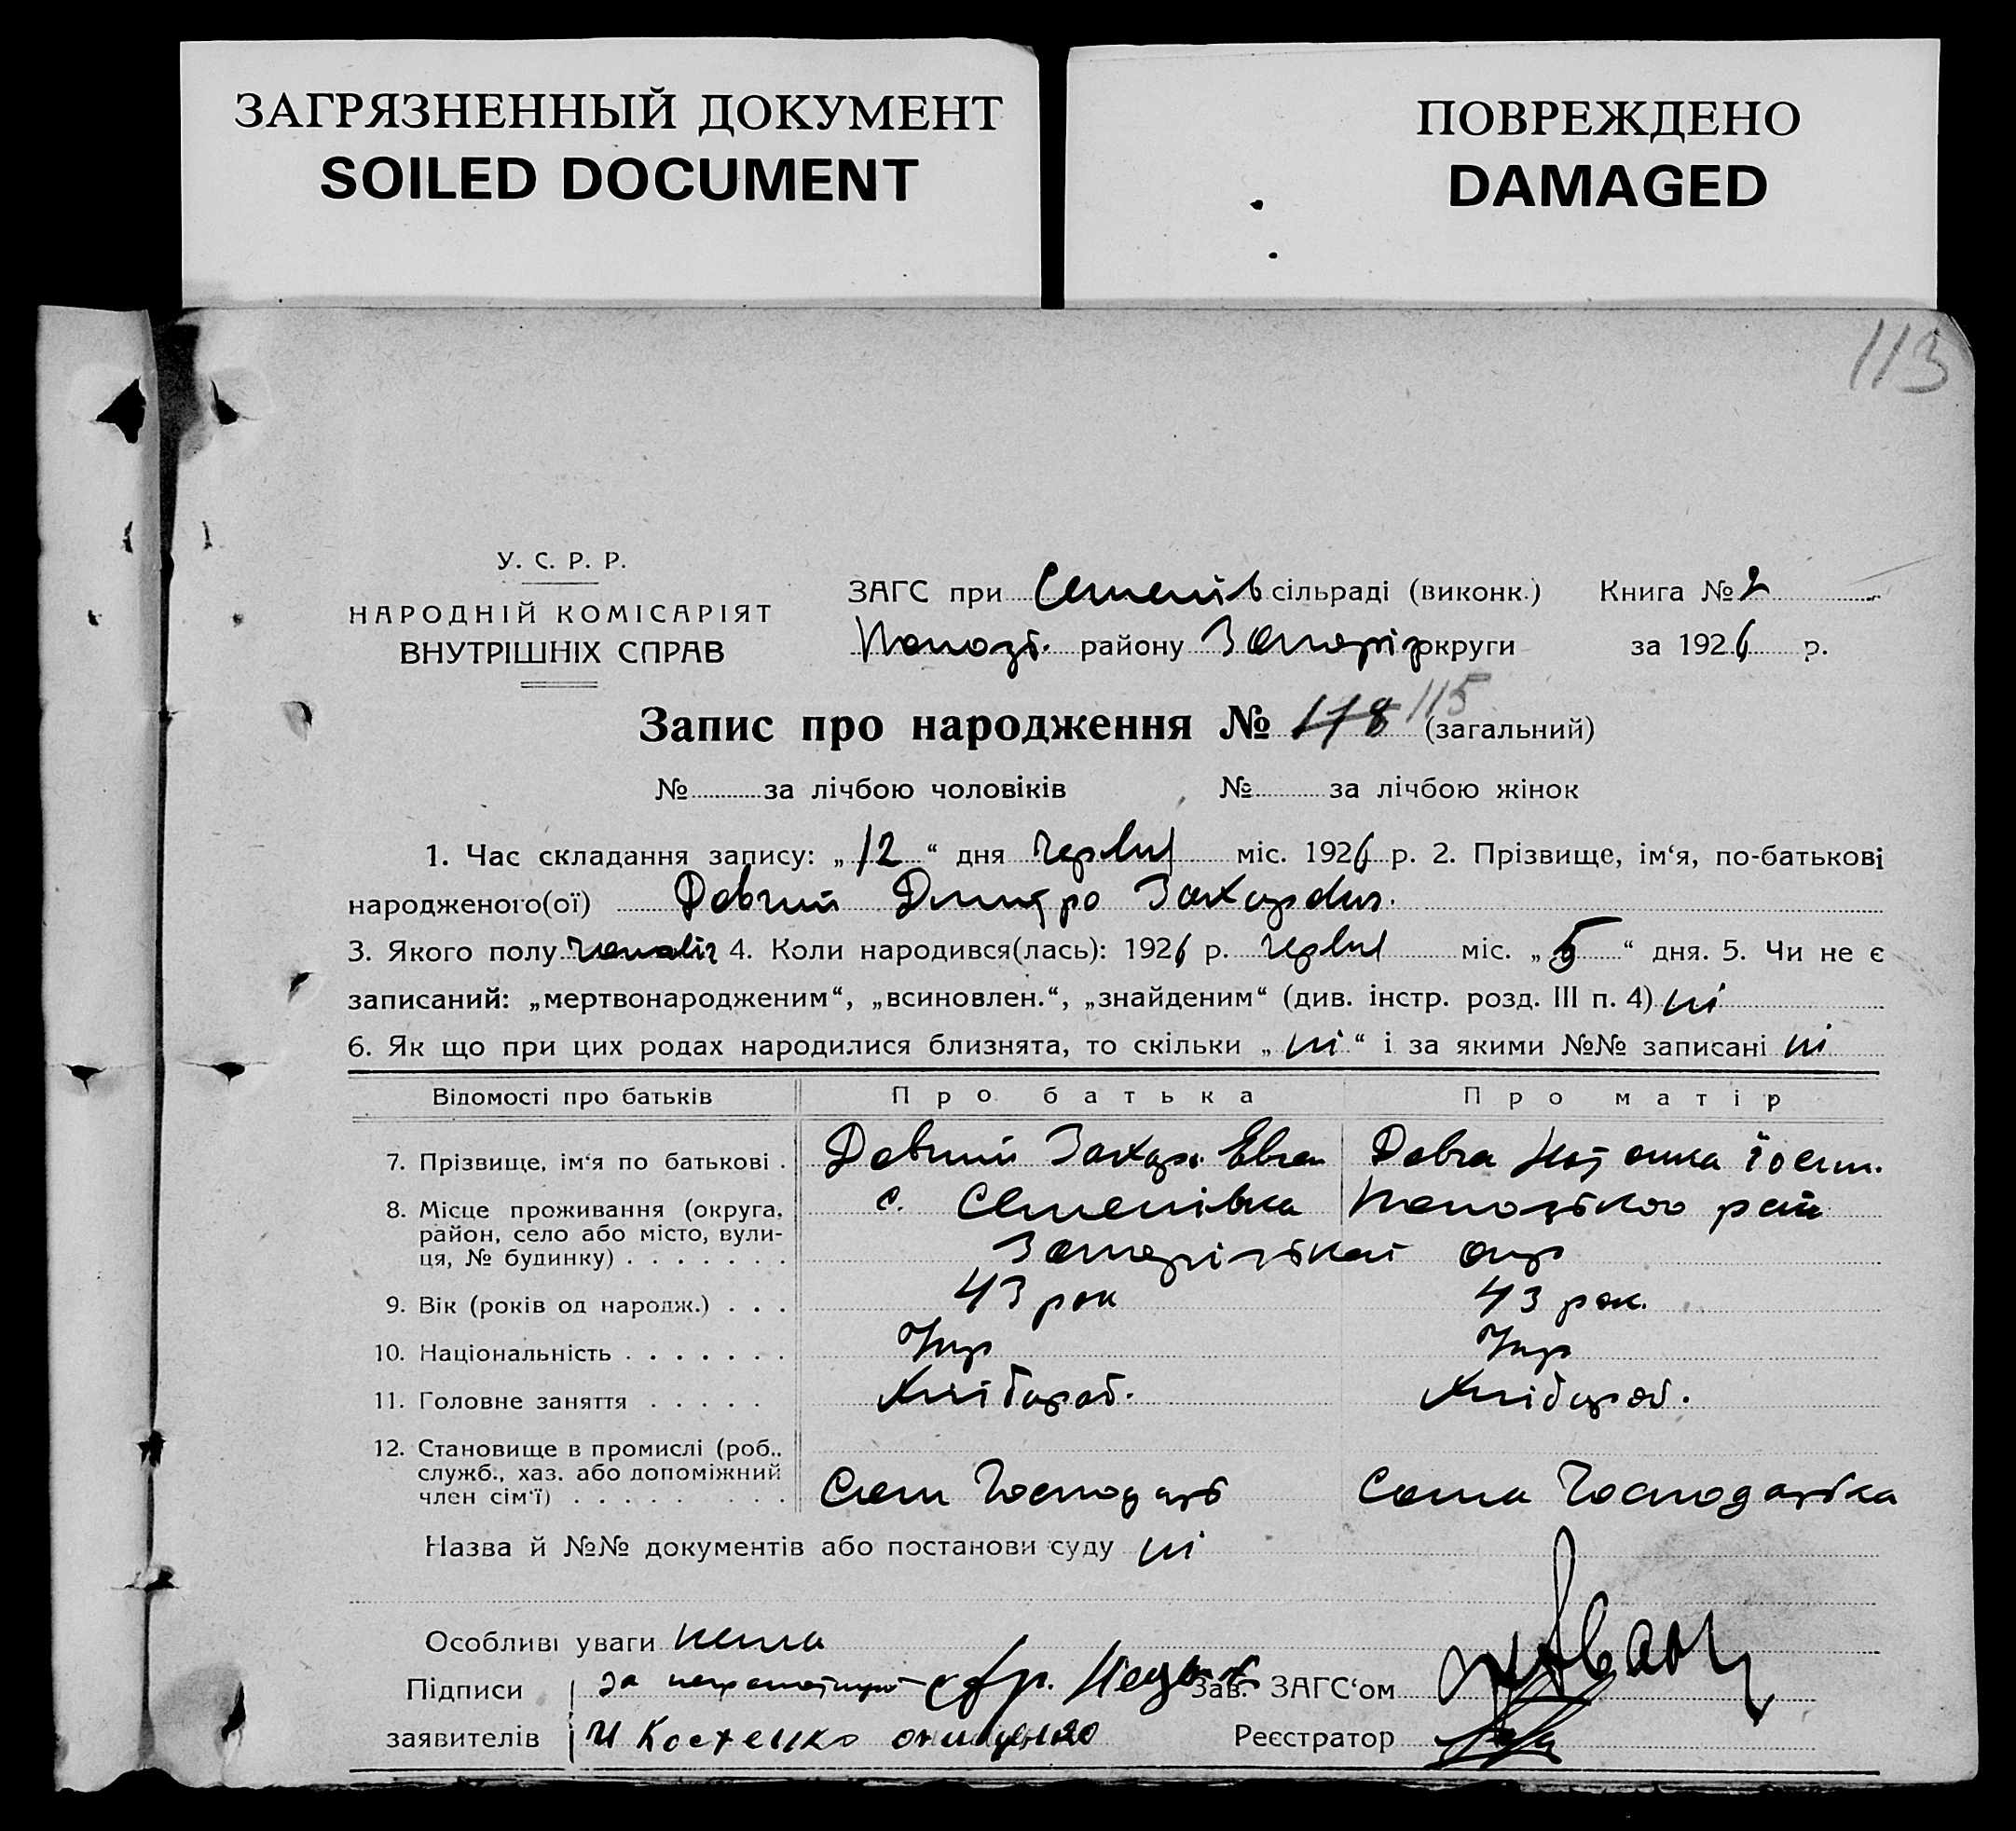 ЗАГРЯЗНЕННЫЙ ДОКУМЕНТ
SOILED DOCUMENT
ПОВРЕЖДЕНО
DAMAGED
113
У. С. Р. Р.
НАРОДНІЙ КОМІСАРІЯТ
ВНУТРІШНІХ СПРАВ
ЗАГС при Семенів сільраді (виконк.) Книга № 2
району Запоріз округи за 1926 р.
Запис про народження № 178 115 (загальний)
№ за лічбою чоловіків № за лічбою жінок
1. Час складання запису: „12“ дня червня міс. 1926 р. 2. Прізвище, ім‘я, по-батькові
народженого(ої) Довгий Дмитро Захарович.
3. Якого полу чоловіч 4. Коли народився(лась): 1926 р. червня міс. „5“ дня. 5. Чи не є
записаний: „мертвонародженим“, „всиновлен.“, „знайденим“ (див. інстр. розд. III п. 4) ні
6. Як що при цих родах народилися близнята, то скільки „ні“ і за якими №№ записані ні
Відомості про батьків Про батька Про матір
7. Прізвище, ім‘я по батькові . Довгий Захар Довга
8. Місце проживання (округа, с. Семенівка рай
район, село або місто, вули-
ця, № будинку) . . . . . . . Запорізької окр
9. Вік (років од народж.) . . . 43 рок 43 рок.
10. Національність . . . . . . . Укр Укр
11. Головне заняття . . . . . Хлібороб. Хлібороб.
12. Становище в промислі (роб.,
служб., хаз. або допоміжний
член сім‘ї) . . . . . . . . . Сам Господарь Сама Господарька
Назва й №№ документів або постанови суду ні
Особливі уваги нема
Підписи за Зав. ЗАГС‘ом
заявителів И Костенко Реєстратор